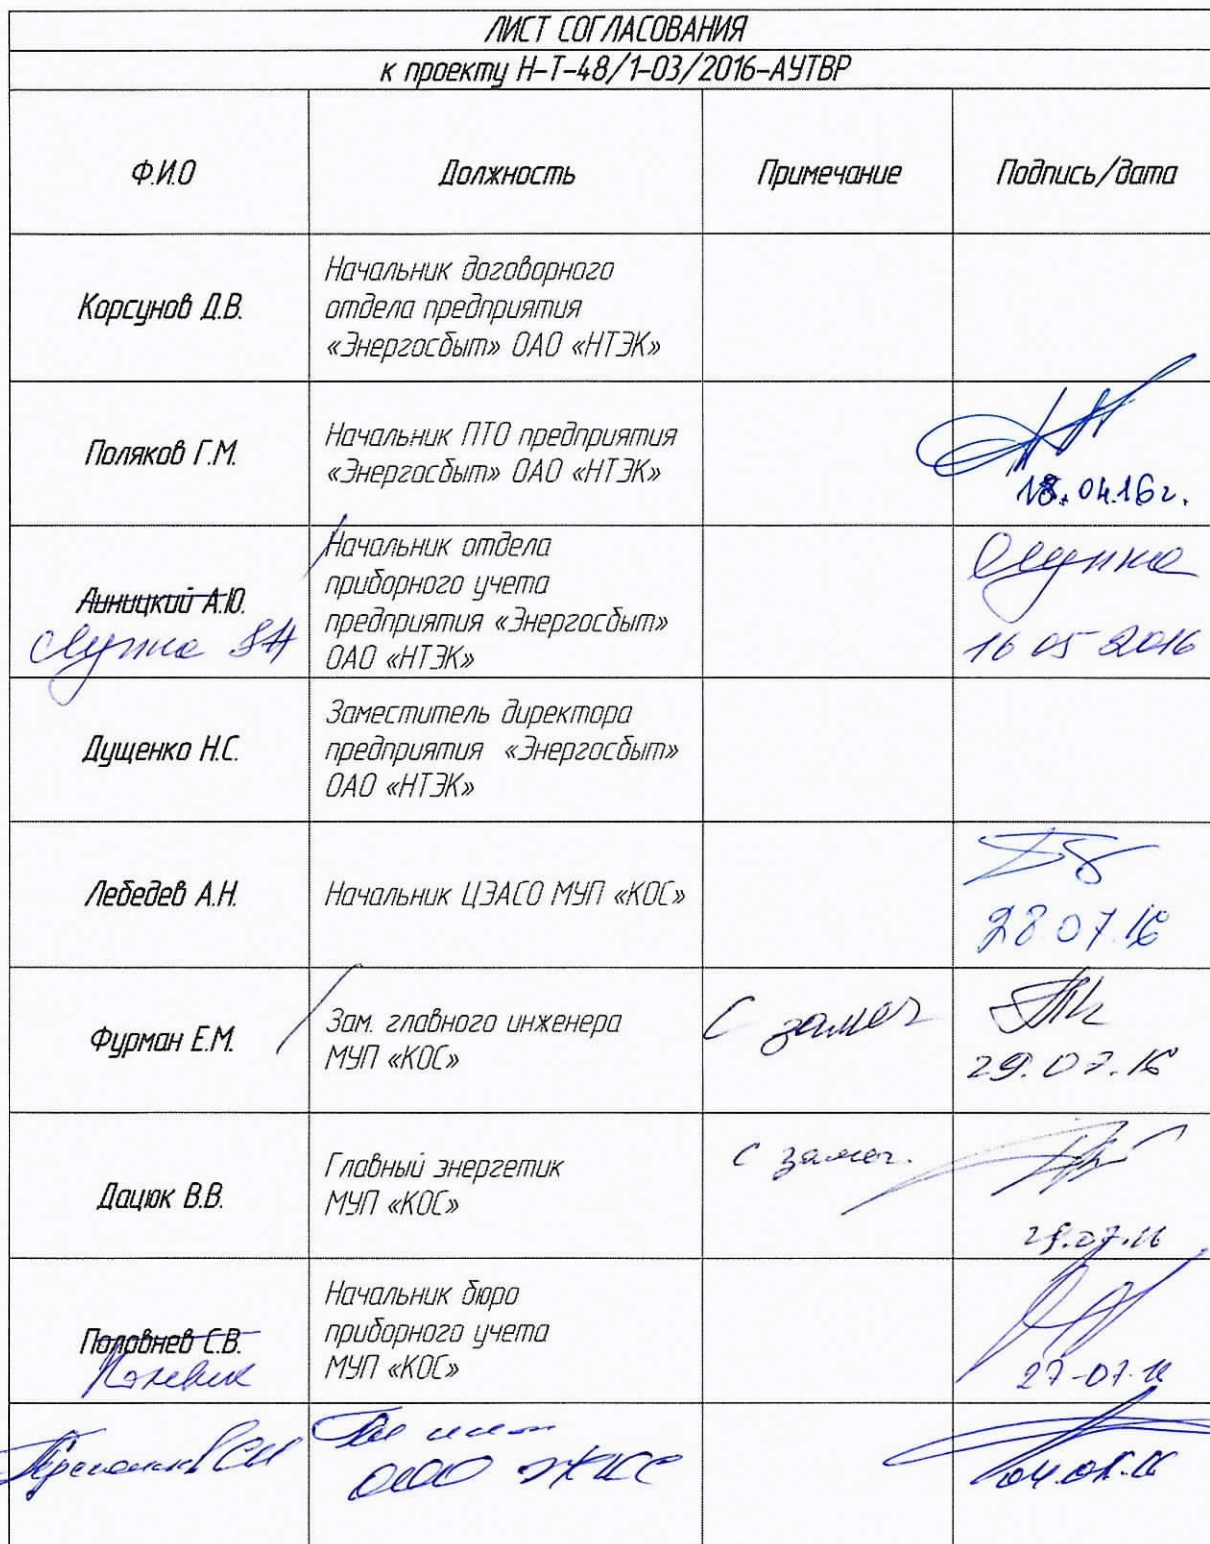 ЛИСТ СОГЛАСОВАНИЯ
к проекту Н-Т-48/1-03/2016-АУТВР
Ф.И.О
Должность
Примечание
Подпись/дата
Корсунов Д.В.
Начальник договорного
отдела предприятия
«Энергосбыт» ОАО «НТЭК»
Поляков Г.М.
Начальник ПТО предприятия
«Энергосбыт» ОАО «НТЭК»
18.04.16г.
Линицкий А.Ю.
Начальник отдела
приборного учета
предприятия «Энергосбыт»
ОАО «НТЭК»
16 05 2016
Дущенко Н.С.
Заместитель директора
предприятия «Энергосбыт»
ОАО «НТЭК»
Лебедев А.Н.
Начальник ЦЭАСО МУП «КОС»
28.07.16
Фурман Е.М.
Зам. главного инженера
МУП «КОС»
С замеч
29.07.16
Дацюк В.В.
Главный энергетик
МУП «КОС»
С замеч.
29.07.16
Половнев С.В.
Начальник бюро
приборного учета
МУП «КОС»
27-07-16
ООО